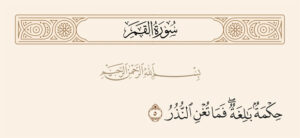 سُورَةُ القَمَرِ
بِسْمِ اللَّهِ الرَّحْمَٰنِ الرَّحِيمِ
حِكْمَةٌۢ بَٰلِغَةٌۖ فَمَا تُغْنِ ٱلنُّذُرُ ٥